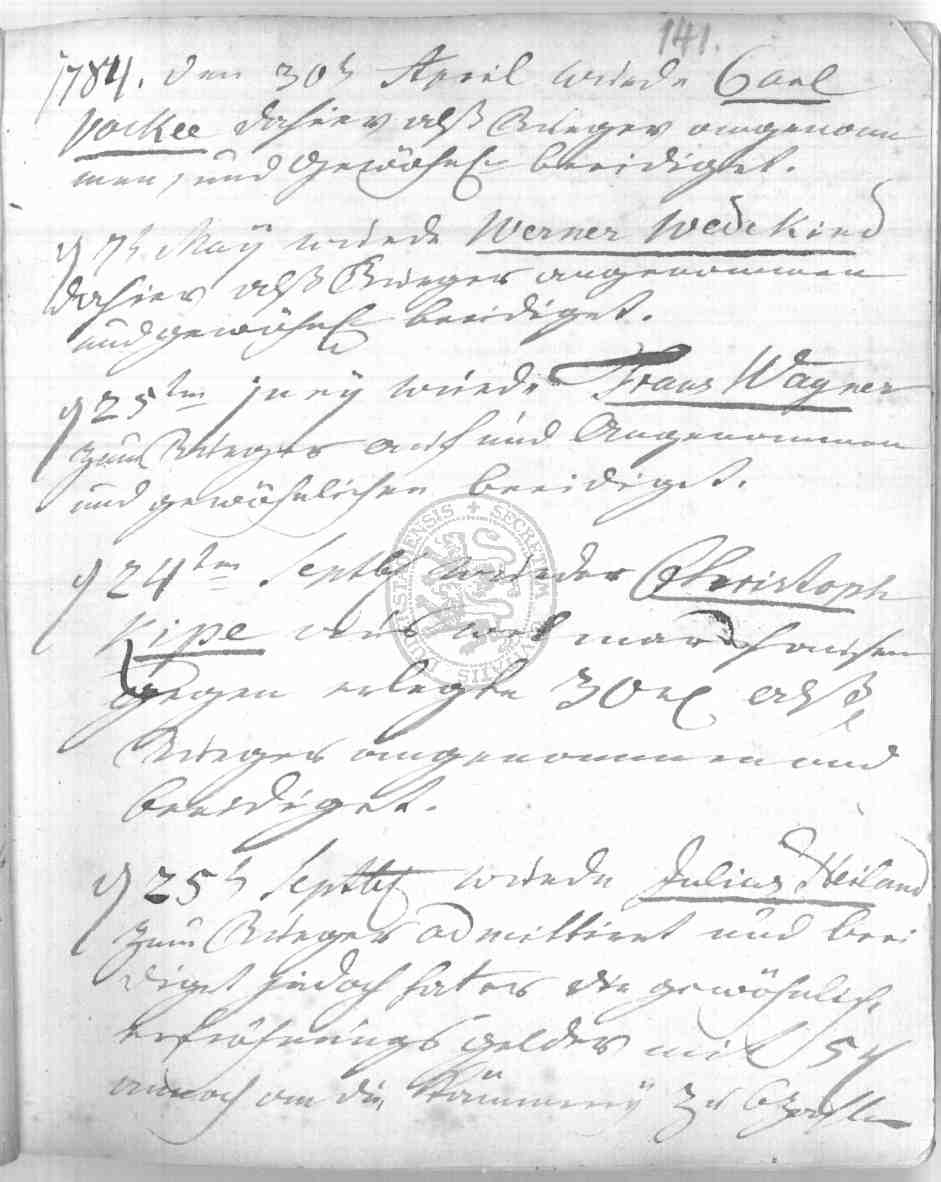 141.
1784. den 30t April wurde Carl
Vockee dahier alß Bürger angenom
men, und gewöhnl beeidiget.
d 7t Maÿ wurde Werner Wedekind
dahier alß Bürger angenommen
und gewöhnl beeidiget.
d 25ten wurde Frans Wagner
zum Bürger auf und Angenommen
und gewöhnlichen beeidiget.
d 24ten Septbr wurde der Christoph
Kipe aus
gegen erlegte 30 alß
Bürger angenommen und
beeidiget.
d 25t Septbr wurde Julius Heiland
zum Bürger admittiret und beei
diget jedoch hat er die gewöhnlich
gelder mit 5
annoch an die Kämmereÿ zu
SECRETUM CIVITATIS